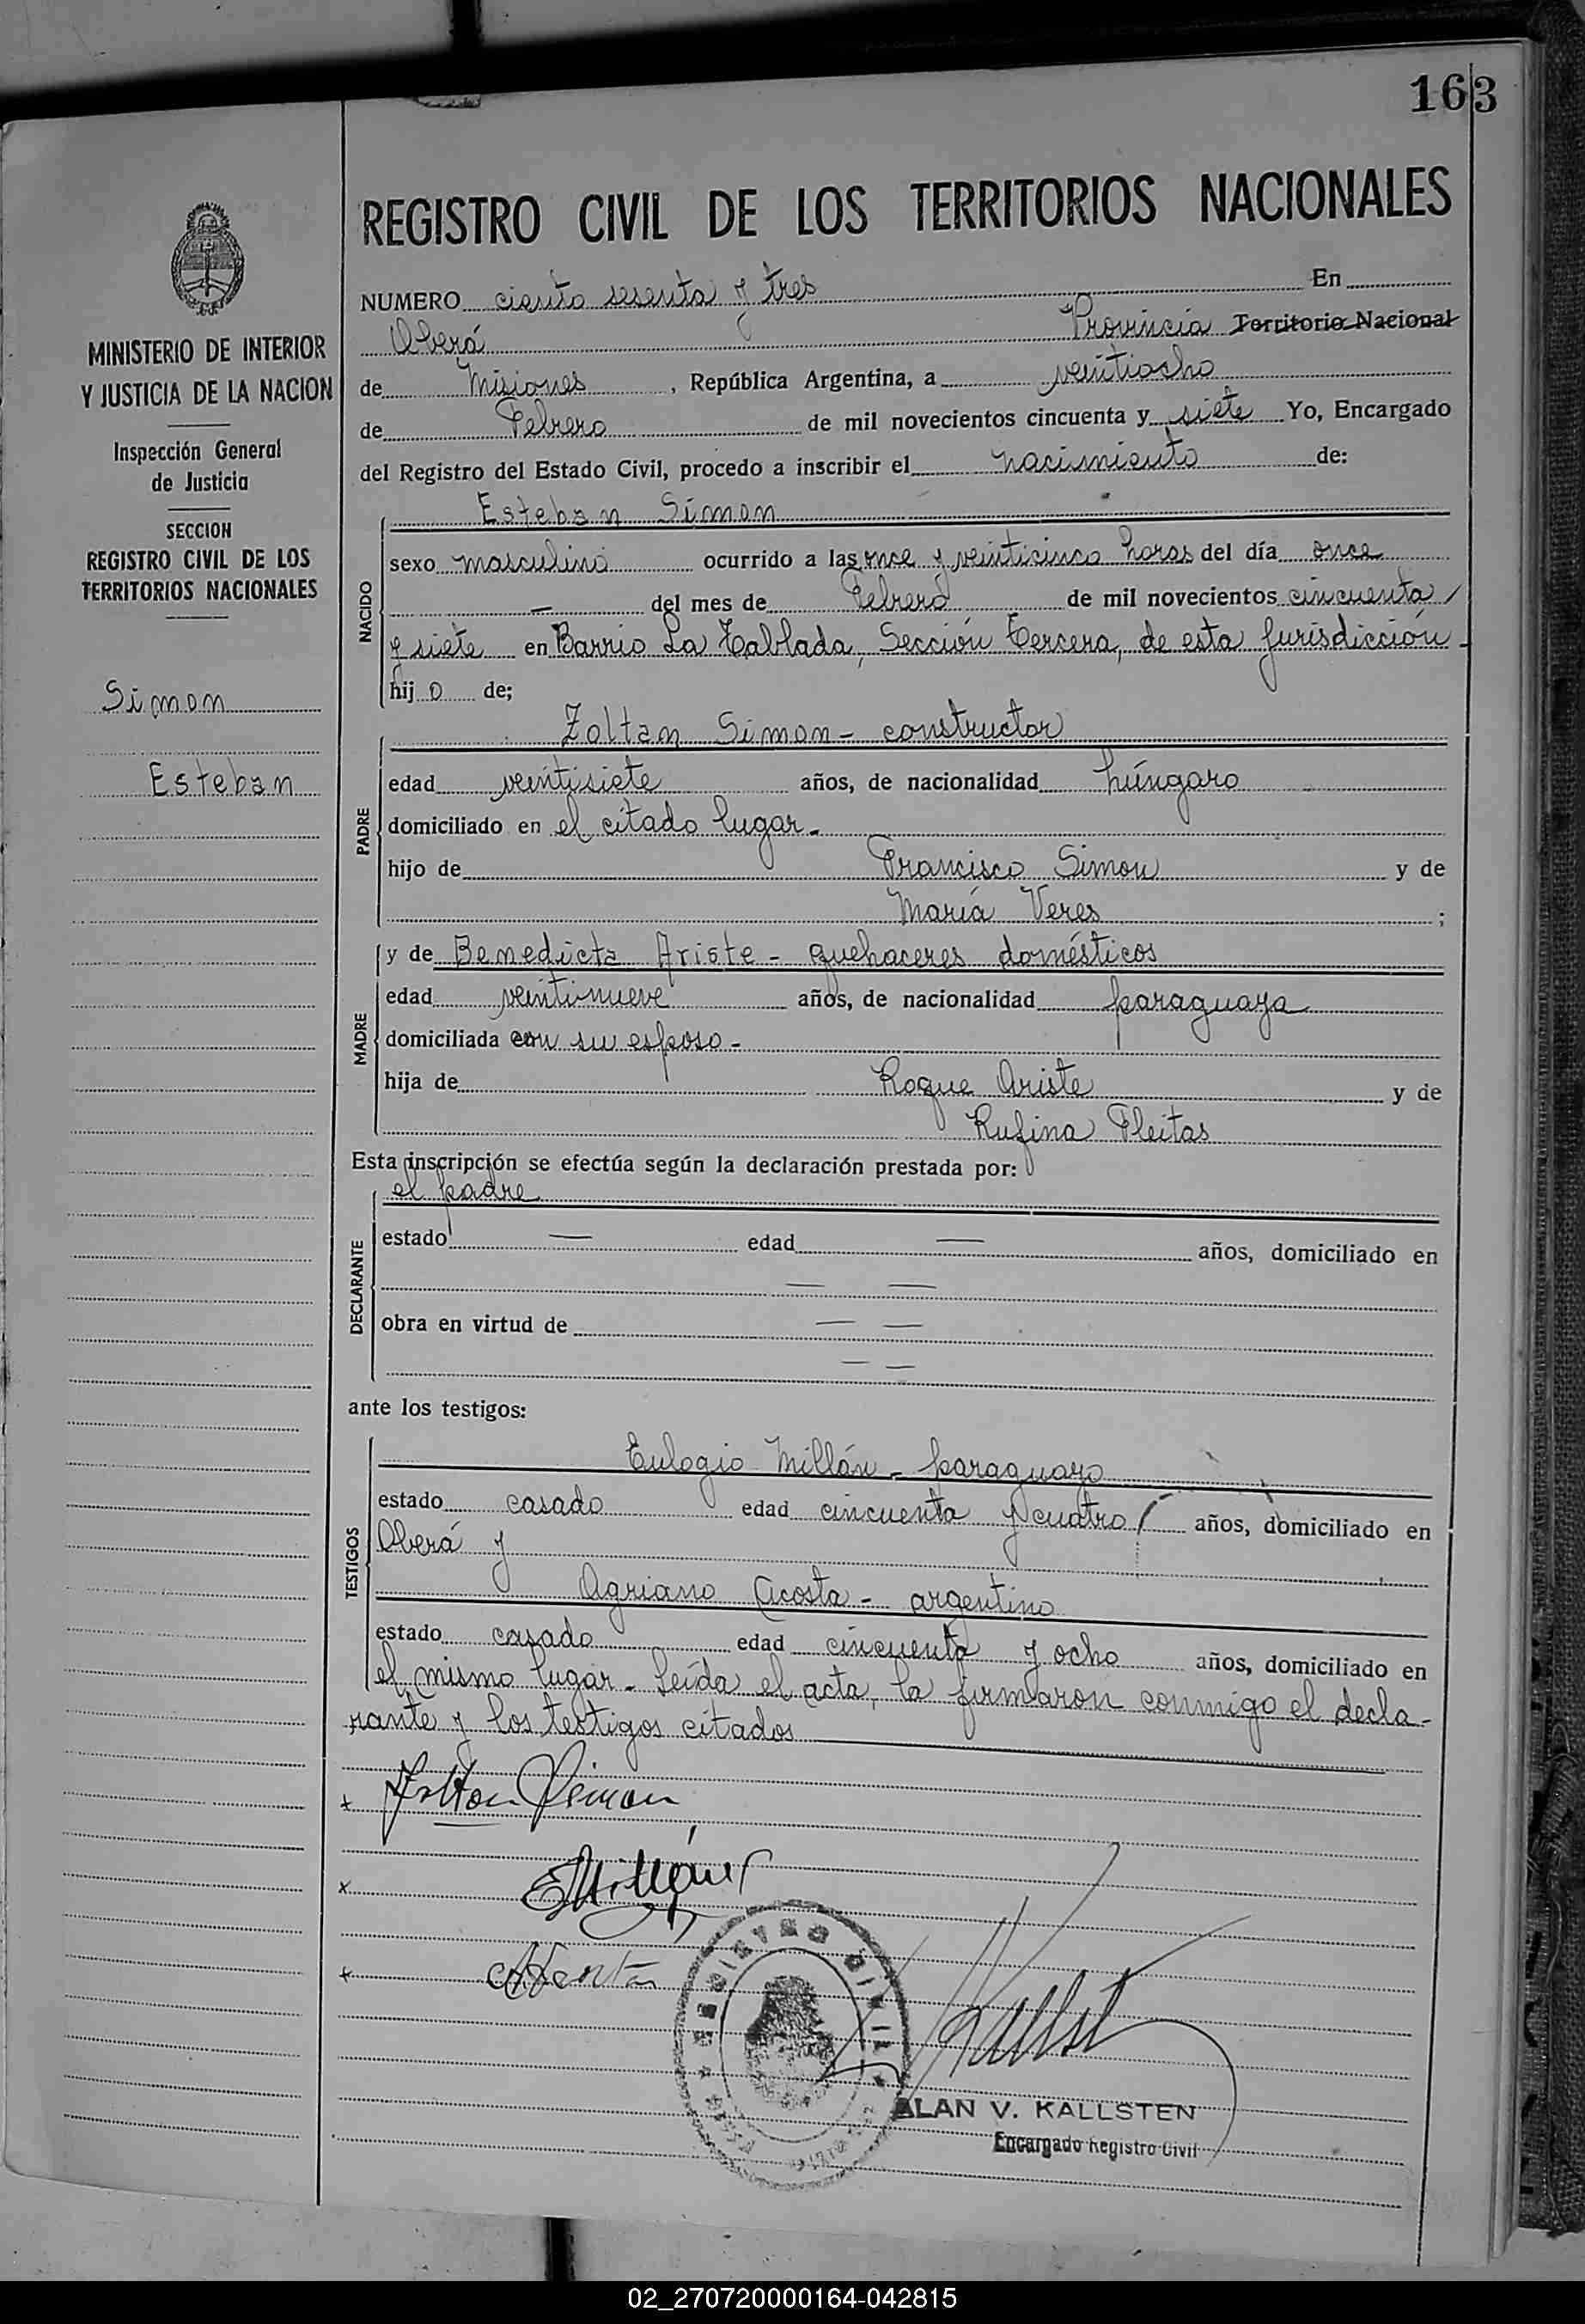 163
REGISTRO CIVIL DE LOS TERRITORIOS NACIONALES
NUMERO ciento sesenta y tres En
Oberá Provincia Territorio Nacional
de Misiones , República Argentina, a veintiocho
de Febrero de mil novecientos cincuenta y siete Yo, Encargado
del Registro del Estado Civil, procedo a inscribir el nacimiento de:
MINISTERIO DE INTERIOR
Y JUSTICIA DE LA NACION
Inspección General
de Justicia
SECCION
REGISTRO CIVIL DE LOS
TERRITORIOS NACIONALES
Simon
Esteban
NACIDO
Esteban Simon
sexo masculino ocurrido a las once y veinticinco horas del día once
— del mes de Febrero de mil novecientos cincuenta
y siete en Barrio La Tablada, Sección Tercera, de esta Jurisdicción
hijo de;
PADRE
Zoltan Simon - constructor
edad veintisiete años, de nacionalidad húngaro
domiciliado en el citado lugar.
hijo de Francisco Simon y de
María Veres ;
MADRE
y de Benedicta Ariste - quehaceres domésticos
edad veintinueve años, de nacionalidad paraguaya
domiciliada con su esposo -
hija de Roque Ariste y de
Rufina Fleitas
Esta inscripción se efectúa según la declaración prestada por:
DECLARANTE
el padre
estado — edad — años, domiciliado en
— —
obra en virtud de — —
— —
ante los testigos:
TESTIGOS
Eulogio Millán - paraguayo
estado casado edad cincuenta y cuatro años, domiciliado en
Oberá y
Agriano Acosta - argentino
estado casado edad cincuenta y ocho años, domiciliado en
el mismo lugar. Leída el acta, la firmaron conmigo el decla-
rante y los testigos citados
x Zoltan Simon
x EMillán
x
REGISTRO CIVIL
ALAN V. KALLSTEN
Encargado Registro Civil
02_270720000164-042815